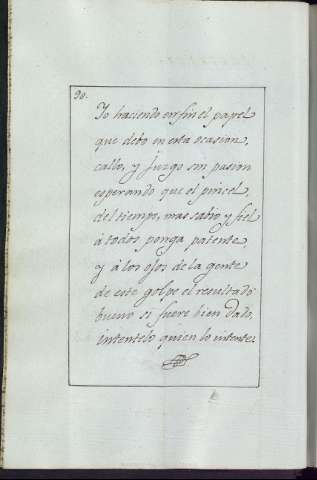 90.
Yo haciendo en fin el papel
que debo en esta ocasion,
callo, y juzgo sin pasion
esperando que el pincel
del tiempo, mas sabio y fiel
à todos ponga patente
y à los ojos de la gente
de este golpe el resultado
bueno si fuere bien dado,
intentelo quien lo intente.